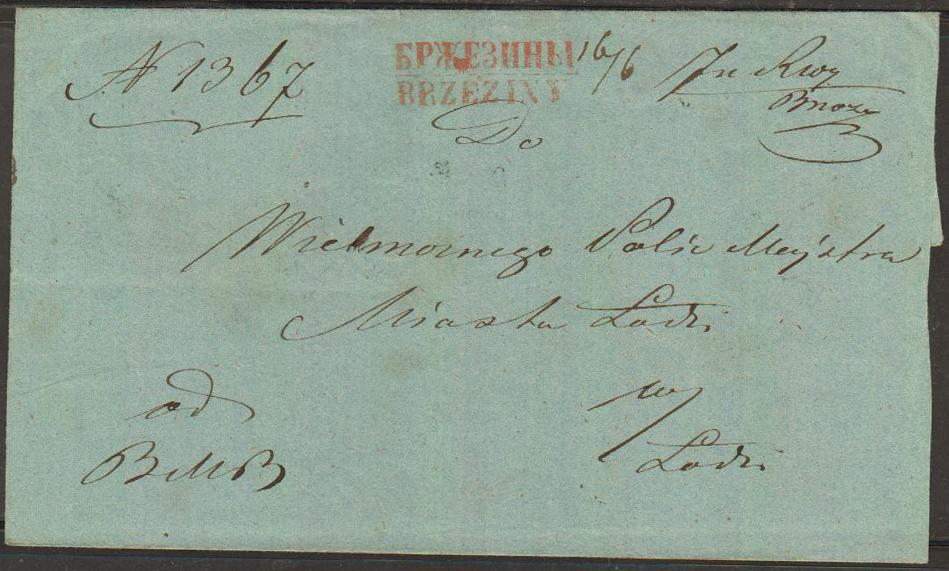 N 1367
БРЖЕЗИНЫ
BRZEZINY
16/6
Do
Wielmożnego Polic Majstra
Miasta Łodzi
od
BMB
w
Łodzi